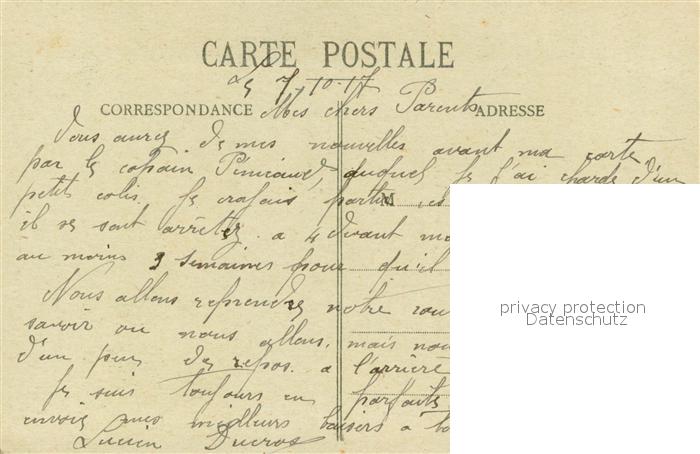 CARTE POSTALE
Le 7-10-17
CORRESPONDANCE Mes chers Parents ADRESSE
Vous aurez de mes nouvelles avant ma carte
par le copain auquel je l'ai chargé d'un
petit colis. Je croyais partir M
il se sont arrêtez a 4 devant
au moins 3 semaines pour qu'il
Nous allons reprendre notre
savoir ou nous allons, mais
d'un peu de repos. a l'arrière
Je suis toujours en parfaite
envoie mes meilleurs baisers a
Lucien Ducros
privacy protection
Datenschutz